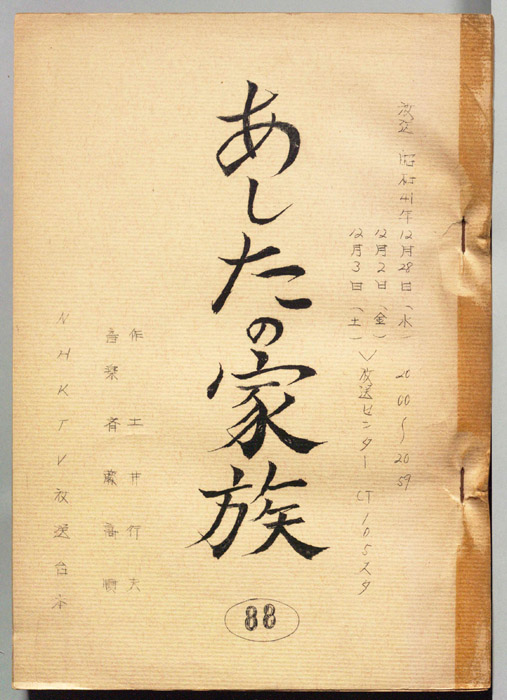 放送 昭和41年12月28日(水) 20 00〜20 59
12月2日(金)
12月3日(土)
放送センター CT105スタ
あしたの家族
88
作 土井行夫
音楽 斉藤高順
NHKTV放送台本